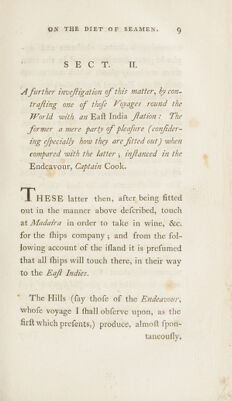 ON THE DIET OF SEAMEN. 9
SECT. II.
A further inveſtigation of this matter, by con-
traſting one of thoſe Voyages round the
World with an Eaſt India ſtation: The
former a mere party of pleaſure (conſider-
ing eſpecially how they are fitted out) when
compared with the latter; inſtanced in the
Endeavour, Captain Cook.
THESE latter then, after being fitted
out in the manner above-deſcribed, touch
at Madaira in order to take in wine, &c.
for the ſhips company; and from the fol-
lowing account of the iſland it is preſumed
that all ſhips will touch there, in their way
to the Eaſt Indies.
The Hills (ſay thoſe of the Endeavour,
whoſe voyage I ſhall obſerve upon, as the
firſt which preſents,) produce, almoſt ſpon-
taneouſly,